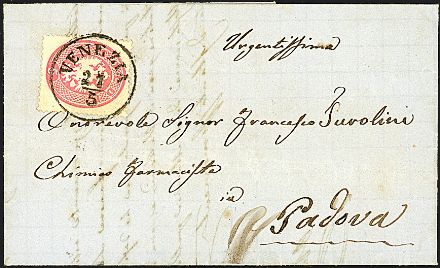 VENEZIA
21
3
Urgentissima
Onorevole Signor Francesco
Chimico Farmacista
in
Padova